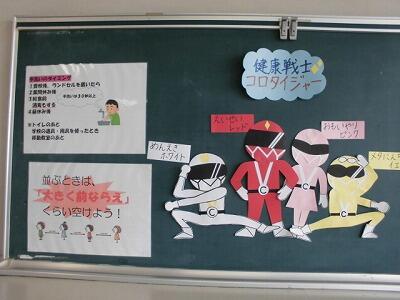 手洗いのタイミング
1 登校後、ランドセルを置いたら
2 業間休み後
3 給食前
消毒もする
4 昼休み後
手洗いは30秒以上
※トイレのあと
学校の道具・用具を使ったとき
移動教室のあと
並ぶときは、
「大きく前ならえ」
くらい空けよう！
健康戦士
コロタイジャー
めんえき
ホワイト
えいせい
レッド
おもいやり
ピンク